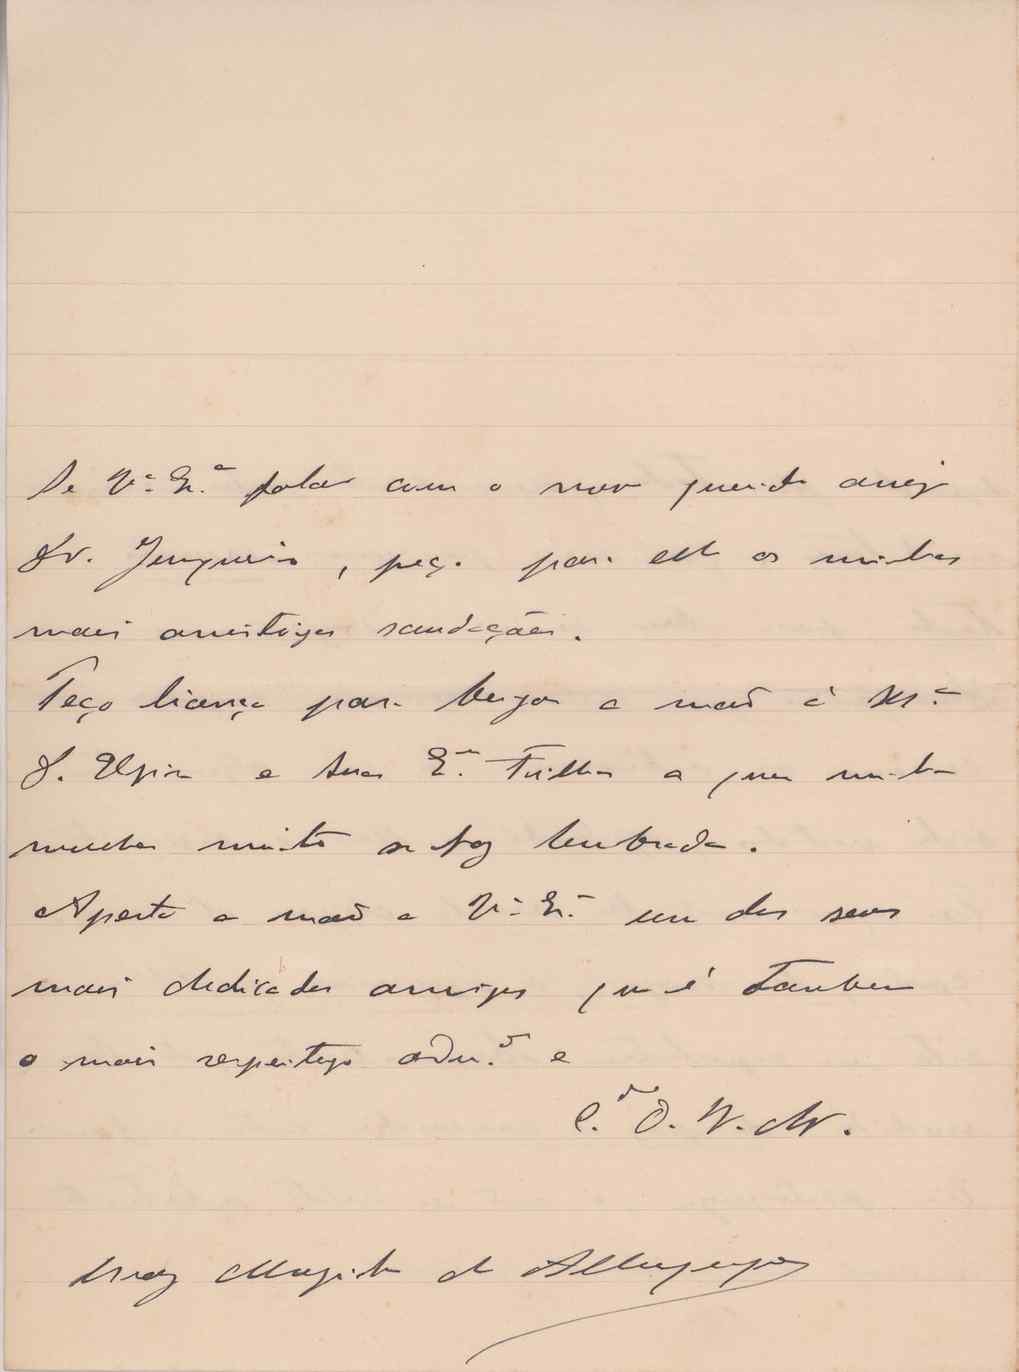 Se V.ª Ex.ª falar com o nosso querido amigo
Dr. Junqueiro, peço para elle as minhas
mais amistosas saudações.
Peço licença para beijar a mão á Sr.ª
D. Elzira e suas Ex.ᵐᵃˢ Filhas a quem minha
mulher muito se faz lembrada.
Aperta a mão a V.ª Ex.ª um dos seus
mais dedicados amigos que é tambem
o mais respeitoso adm.ᵒʳ e
C.ᵈᵒ O. V. M.
Luiz Mesquita de Albuquerque